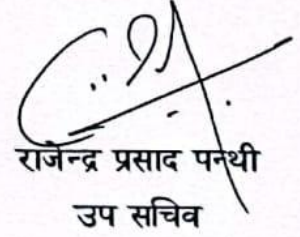 राजेन्द्र प्रसाद पन्थी
उप सचिव